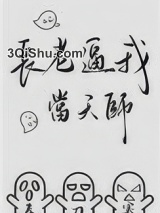 3QiShu.com
長老逼我
當天師